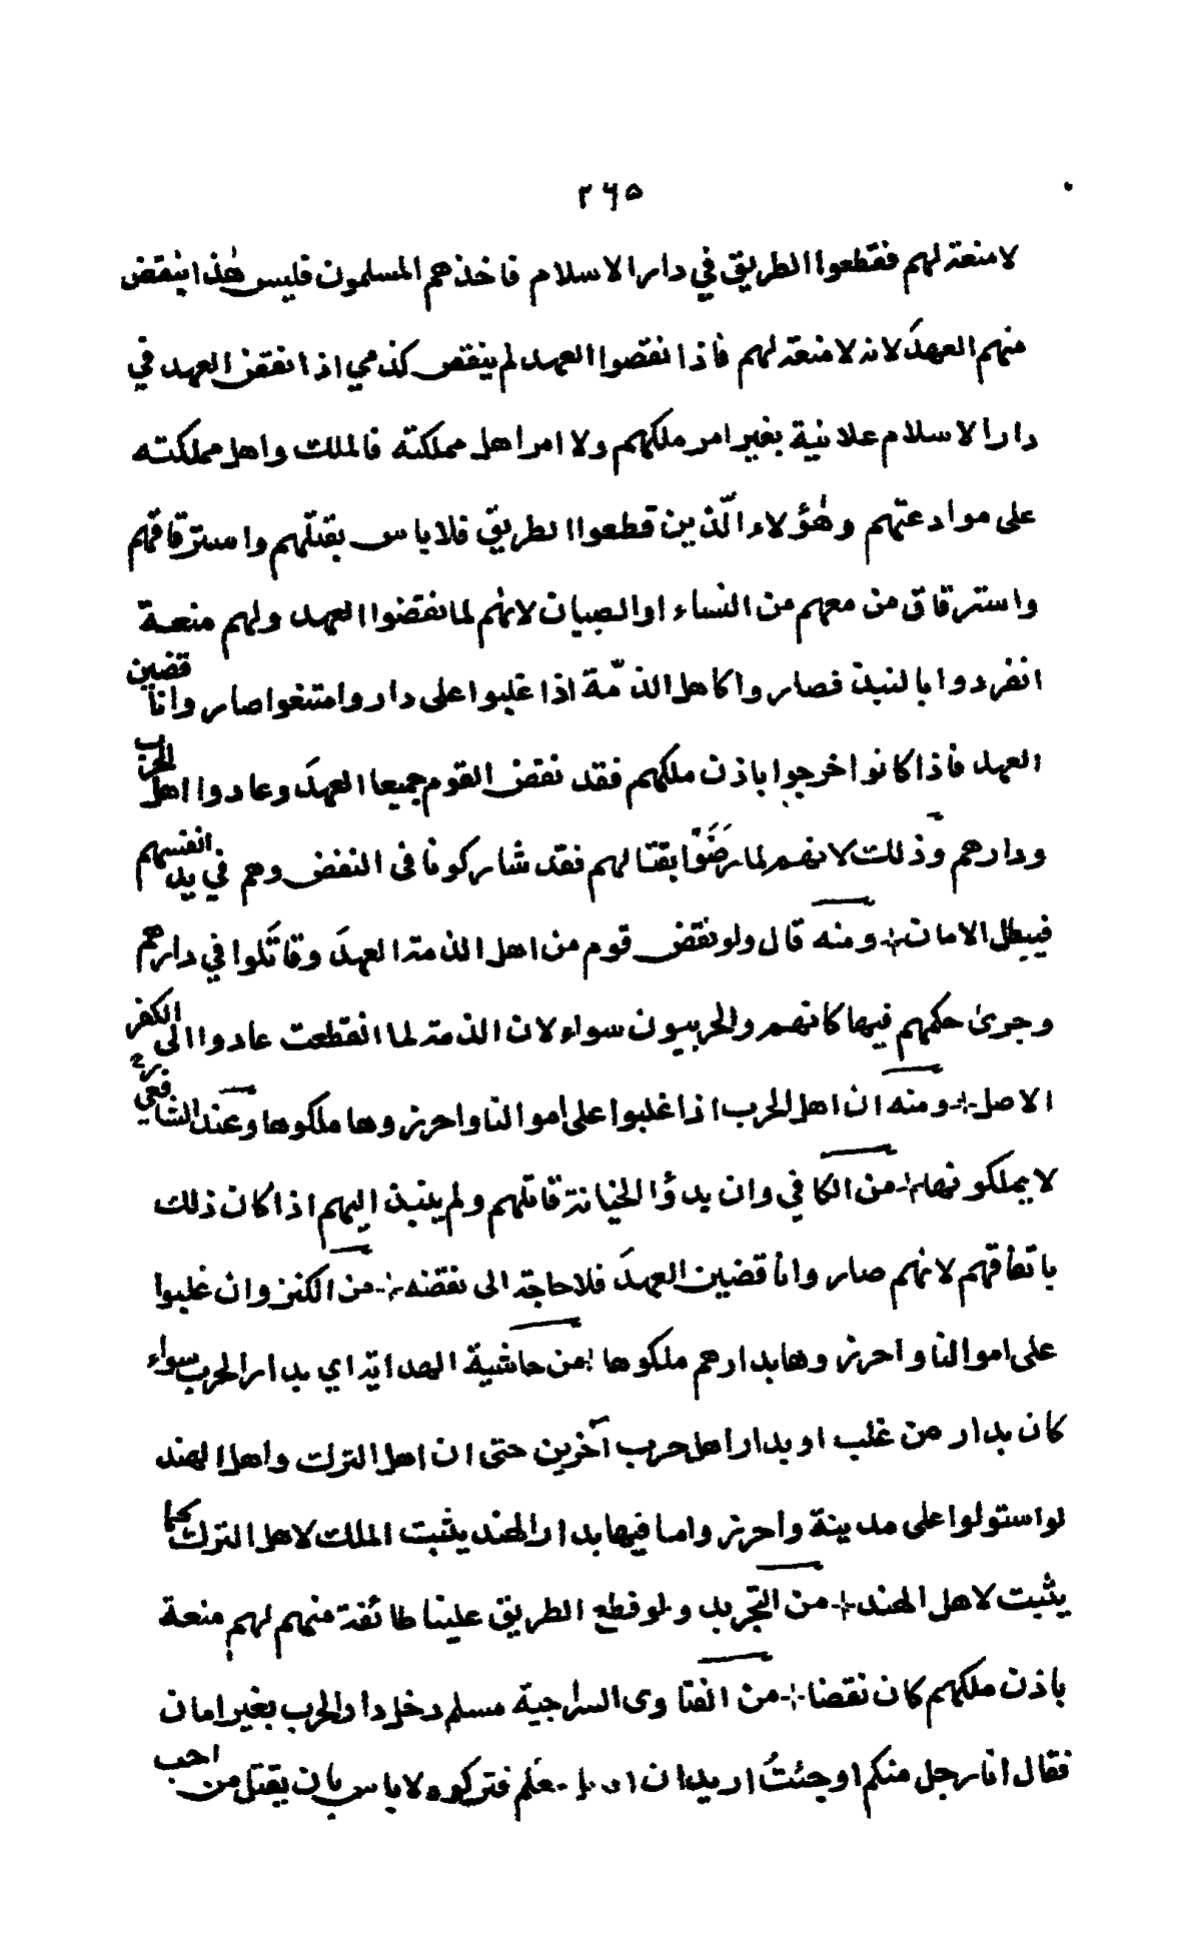 ۲۶۵
لا منعة لهم فقطعوا الطريق في دار الاسلام فاخذهم المسلمون فليس هٰذا ينقض
منهم العهدَ لانه لا منعة لهم فاذا نقضوا العهد لم ينتقض كذمي اذا نقض العهد في
دار الاسلام علانية بغير امر ملكهم ولا امر اهل مملكته فالملك واهل مملكته
على موادعتهم وهٰؤلاء الّذين قطعوا الطريق فلا باس بقتلهم واسترقاقهم
واسترقاق من معهم من النساء او الصبيان لانهم لما نقضوا العهد ولهم منعة
انفردوا بالنبذ فصاروا كاهل الذمّة اذا غلبوا على دار وامتنعوا صاروا ناقضين
العهد فاذا كانوا خرجوا باذن ملكهم فقد نقض القوم جميعا العهدَ وعادوا اهل الحرب
ودارهم وذلك لانهم لما رَضَوْا بقتالهم فقد شاركونا فى النقض وهم في يد انفسهم
فيبطل الامان ومنه قال ولو نقض قوم من اهل الذمة العهدَ وقاتَلوا في دارهم
وجرىٰ حكمهم فيها كانهم والحربيون سواء لان الذمة لما انقطعت عادوا الى الكفر
الاصل ومنه ان اهل الحرب اذا غلبوا على اموالنا واحرزوها ملكوها وعند الشافعي رح
لا يملكونها من الكافي وان بدؤا الخيانة قاتلهم ولم ينبذ اليهم اذا كان ذلك
باتفاقهم لانهم صاروا ناقضين العهدَ فلا حاجة الى نقضه من الكنز وان غلبوا
على اموالنا واحرزوها بدارهم ملكوها من حاشية الهداية اي بدار الحرب سواء
كان بدار من غلب او بدار اهل حرب آخرين حتى ان اهل الترك واهل الهند
لو استولوا على مدينة واحرزوا ما فيها بدار الهند يثبت الملك لاهل الترك كما
يثبت لاهل الهند من التجريد ولو قطع الطريق علينا طائفة منهم لهم منعة
باذن ملكهم كان نقضا من الفتاوى السراجية مسلم دخل دار الحرب بغير امان
فقال انا رجل منكم او جئتُ اريد ان فتركوه لا باس بان يقتل من احب